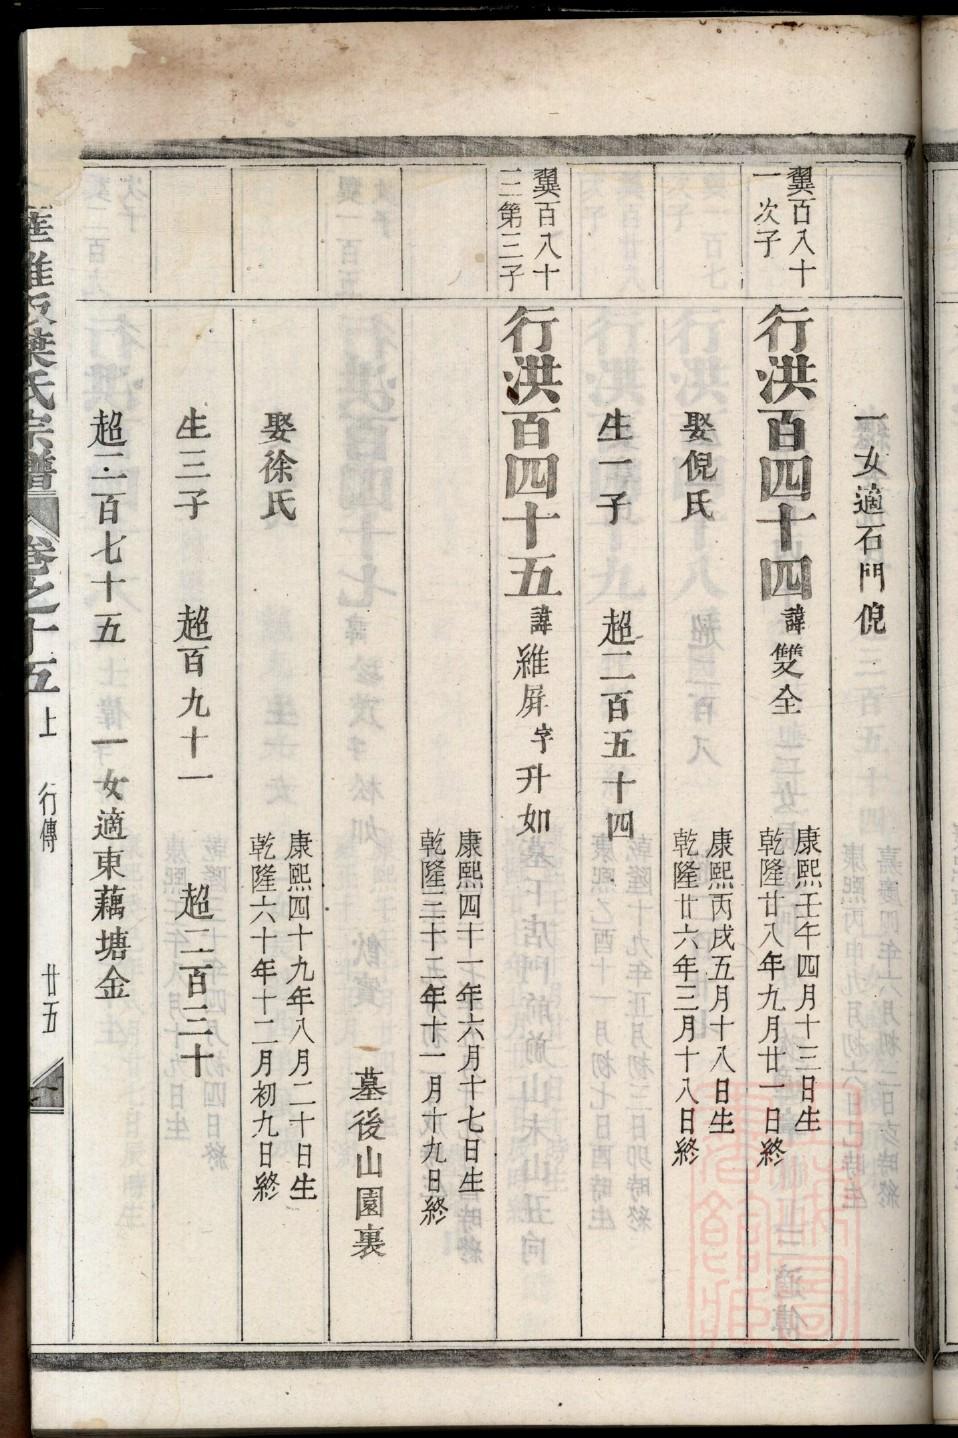 一女適石門倪
翼百八十
一次子
行洪百四十四
諱雙全
康熙壬午四月十三日生
乾隆廿八年九月廿一日終
娶倪氏
康熙丙戌五月十八日生
乾隆廿六年三月十八日終
生一子
超二百五十四
翼百八十
三第三子
行洪百四十五
諱維屏字升如
康熙四十一年六月十七日生
乾隆三十二年十一月十九日終
墓後山園裏
娶徐氏
康熙四十九年八月二十日生
乾隆六十年十二月初九日終
生三子
超百九十一
超二百三十
超二百七十五
一女適東藕塘金
葉氏宗譜
卷之十五
上
行傳
廿五